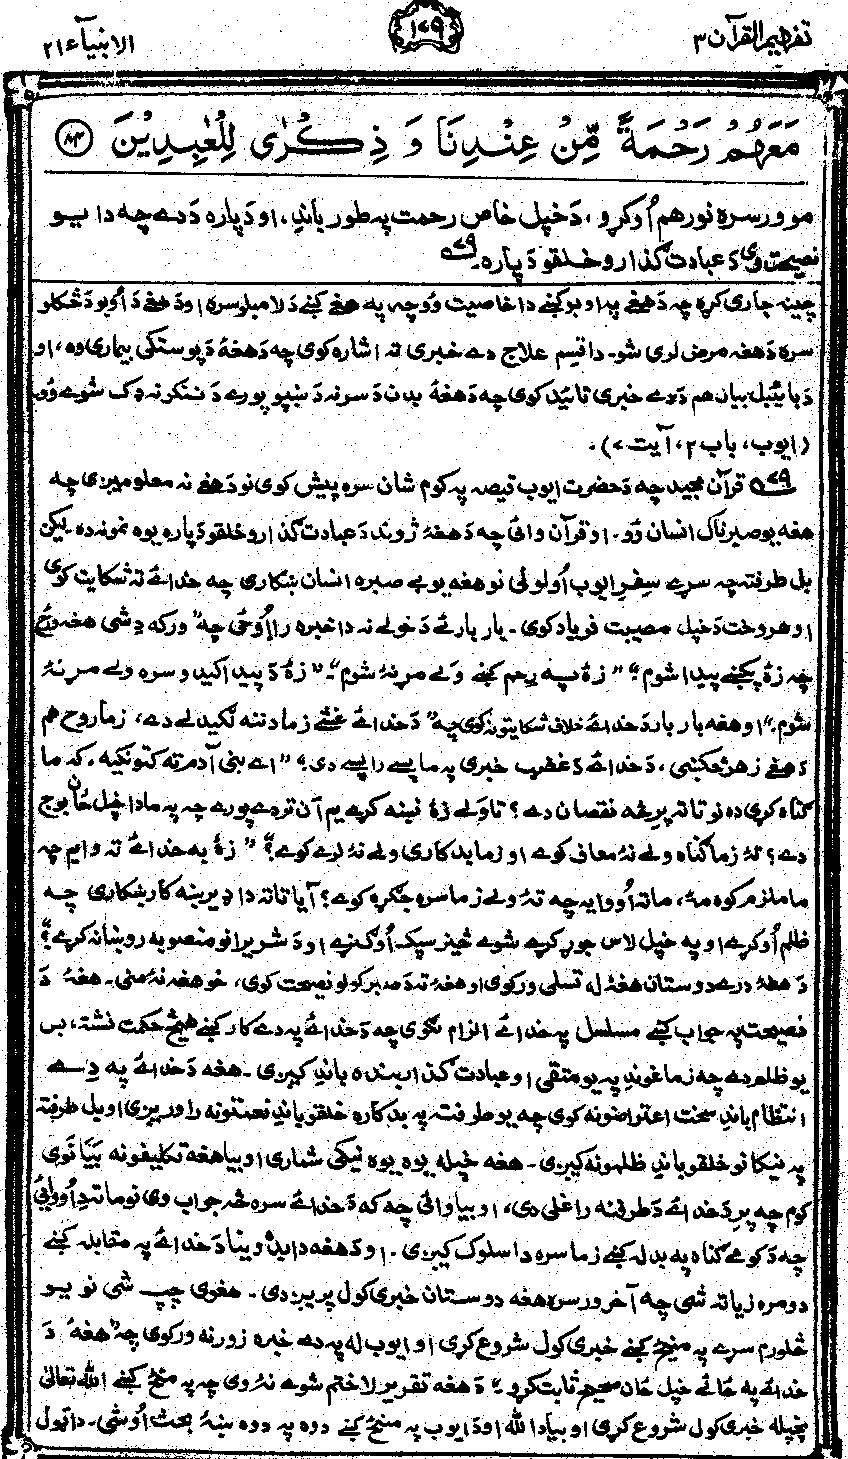 تفهيم القرآن ٣
١٧٩
الانبيآء ٢١
مَعَهُمْ رَحْمَةً مِّنْ عِنْدِنَا وَ ذِكْرٰى لِلْعٰبِدِيْنَ ﴿٨٤﴾
مو ورسره نور هم اُوکړو، دَ خپل خاص رحمت په طور باندِ، او دَ پاره دَ دے چه دا یــو
نصیحت وی دَ عبادت گذارو خلقو دَ پاره۔ ٧٩
چینه جاری کړه چه دَ هغے په اوبو کښے دا خاصیت وو چه په هغے کښے دَ لامبلو سره او دَ هغے دَ اُوبو دَ څکلو
سره دَ هغه مرض لری شو۔ دا قسم علاج دے خبری ته اشاره کوی چه دَ هغهٔ دَ پوستکی بیماری وه، او
دَ بائیبل بیان هم دَ دے خبری تائید کوی چه دَ هغهٔ بدن دَ سر نه دَ ښپو پورے دَ ننکو نه ډک شوے وو
(ایوب، باب ٢، آیت ٧)۔
٧٩ قرآن مجید چه دَ حضرت ایوب قیصه په کوم شان سره پیش کوی نو دَ هغے نه معلومیږی چه
هغه یو صبرناک انسان وُو۔ او قرآن وائی چه دَ هغهٔ ژوند دَ عبادت گذارو خلقو دَ پاره یوه نمونه ده۔ لیکن
بل طرفته چه سرے سِفرِ ایوب اُولولی نو هغه یو بے صبره انسان ښکاری چه خدائے ته شکایت کوی
او هر وخت دَ خپل مصیبت فریاد کوی۔ بار بار ئے دَ خولے نه دا خبره رااُوځی چه "ورکه دِ شی هغه ورځ
چه زهٔ پکښے پیدا شوم"، "زهٔ په رحم کښے ولے مړ نهٔ شوم"۔ "زهٔ دَ پیدا کیدو سره ولے مړ نهٔ
شوم"۔ او هغه بار بار دَ خدائے خلاف شکایتونه کوی چه "دَ خدائے غشے زما دننه لگیدلے دے، زما روح هم
دَ هغے زهر څکښی، دَ خدائے دَ غضب خبری په ما پسے راپسے دی"، "اے بنی آدمو ته کتونکیه، که ما
گناه کړی ده نو تا ته پرې څه نقصان دے؟ تا ولے زهٔ نښه کړے یم آن تر دے پورے چه په ما دا خپل ځان بوج
دے؟ تهٔ زما گناه ولے نهٔ معاف کوے او زما بدکاری ولے نهٔ لرے کوے؟" "زهٔ به خدائے ته وایم چه
ما ملزم کوه مهٔ، ما ته اُووایه چه تهٔ ولے زما سره جگړه کوے؟ آیا تا ته دا ډیر ښه کار ښکاری چــه
ظلم اُوکړے او په خپل لاس جوړ کړے شوے څیز سپک اُوگڼے او دَ شریرانو منصوبه روښانه کړے؟"
دَ هغهٔ درے دوستان هغهٔ له تسلی ورکوی او هغهٔ ته دَ صبر کولو نصیحت کوی، خو هغه نهٔ منی۔ هغهٔ دَ
نصیحت په جواب کښے مسلسل په خدائے الزام لگوی چه دَ خدائے په دے کار کښے هیڅ حکمت نشته، بس
یو ظلم دے چه زما غوندِ په یو متقی او عبادت گذار بنده باندِ کیږی۔ هغه دَ خدائے په دے
انتظام باندِ سخت اعتراضونه کوی چه یو طرفته په بدکاره خلقو باندِ نعمتونه راوریږی او بل طرفته
په نیکانو خلقو باندِ ظلمونه کیږی۔ هغه خپله یوه یوه نیکی شماری او بیا هغه تکلیفونه بیانوی
کوم چه پرِ دَ خدائے دَ طرفنه راغلی دی، او بیا وائی چه که دَ خدائے سره څه جواب وی نو ما ته دِ اُووائی
چه دَ کومے گناه په بدل کښے زما سره دا سلوک کیږی۔ او دَ هغه دا بدهٔ وینا دَ خدائے په مقابله کښے
دومره زیاته شی چه آخر ورسره هغه دوستان خبری کول پریږدی۔ هغوی چپ شی نو یــو
څلورم سړے په مینځ کښے خبری کول شروع کړی او ایوب له په دے خبره زورنه ورکوی چه "هغهٔ دَ
خدائے په ځائے خپل ځان صحیح ثابت کړو۔" دَ هغه تقریر لا ختم شوے نهٔ وی چه په منځ کښے الله تعالیٰ
خپله خبری کول شروع کړی او بیا دا الله او دَ ایوب په منځ کښے دوه په دوه ښهٔ بحث اُوشی۔ دا ټول